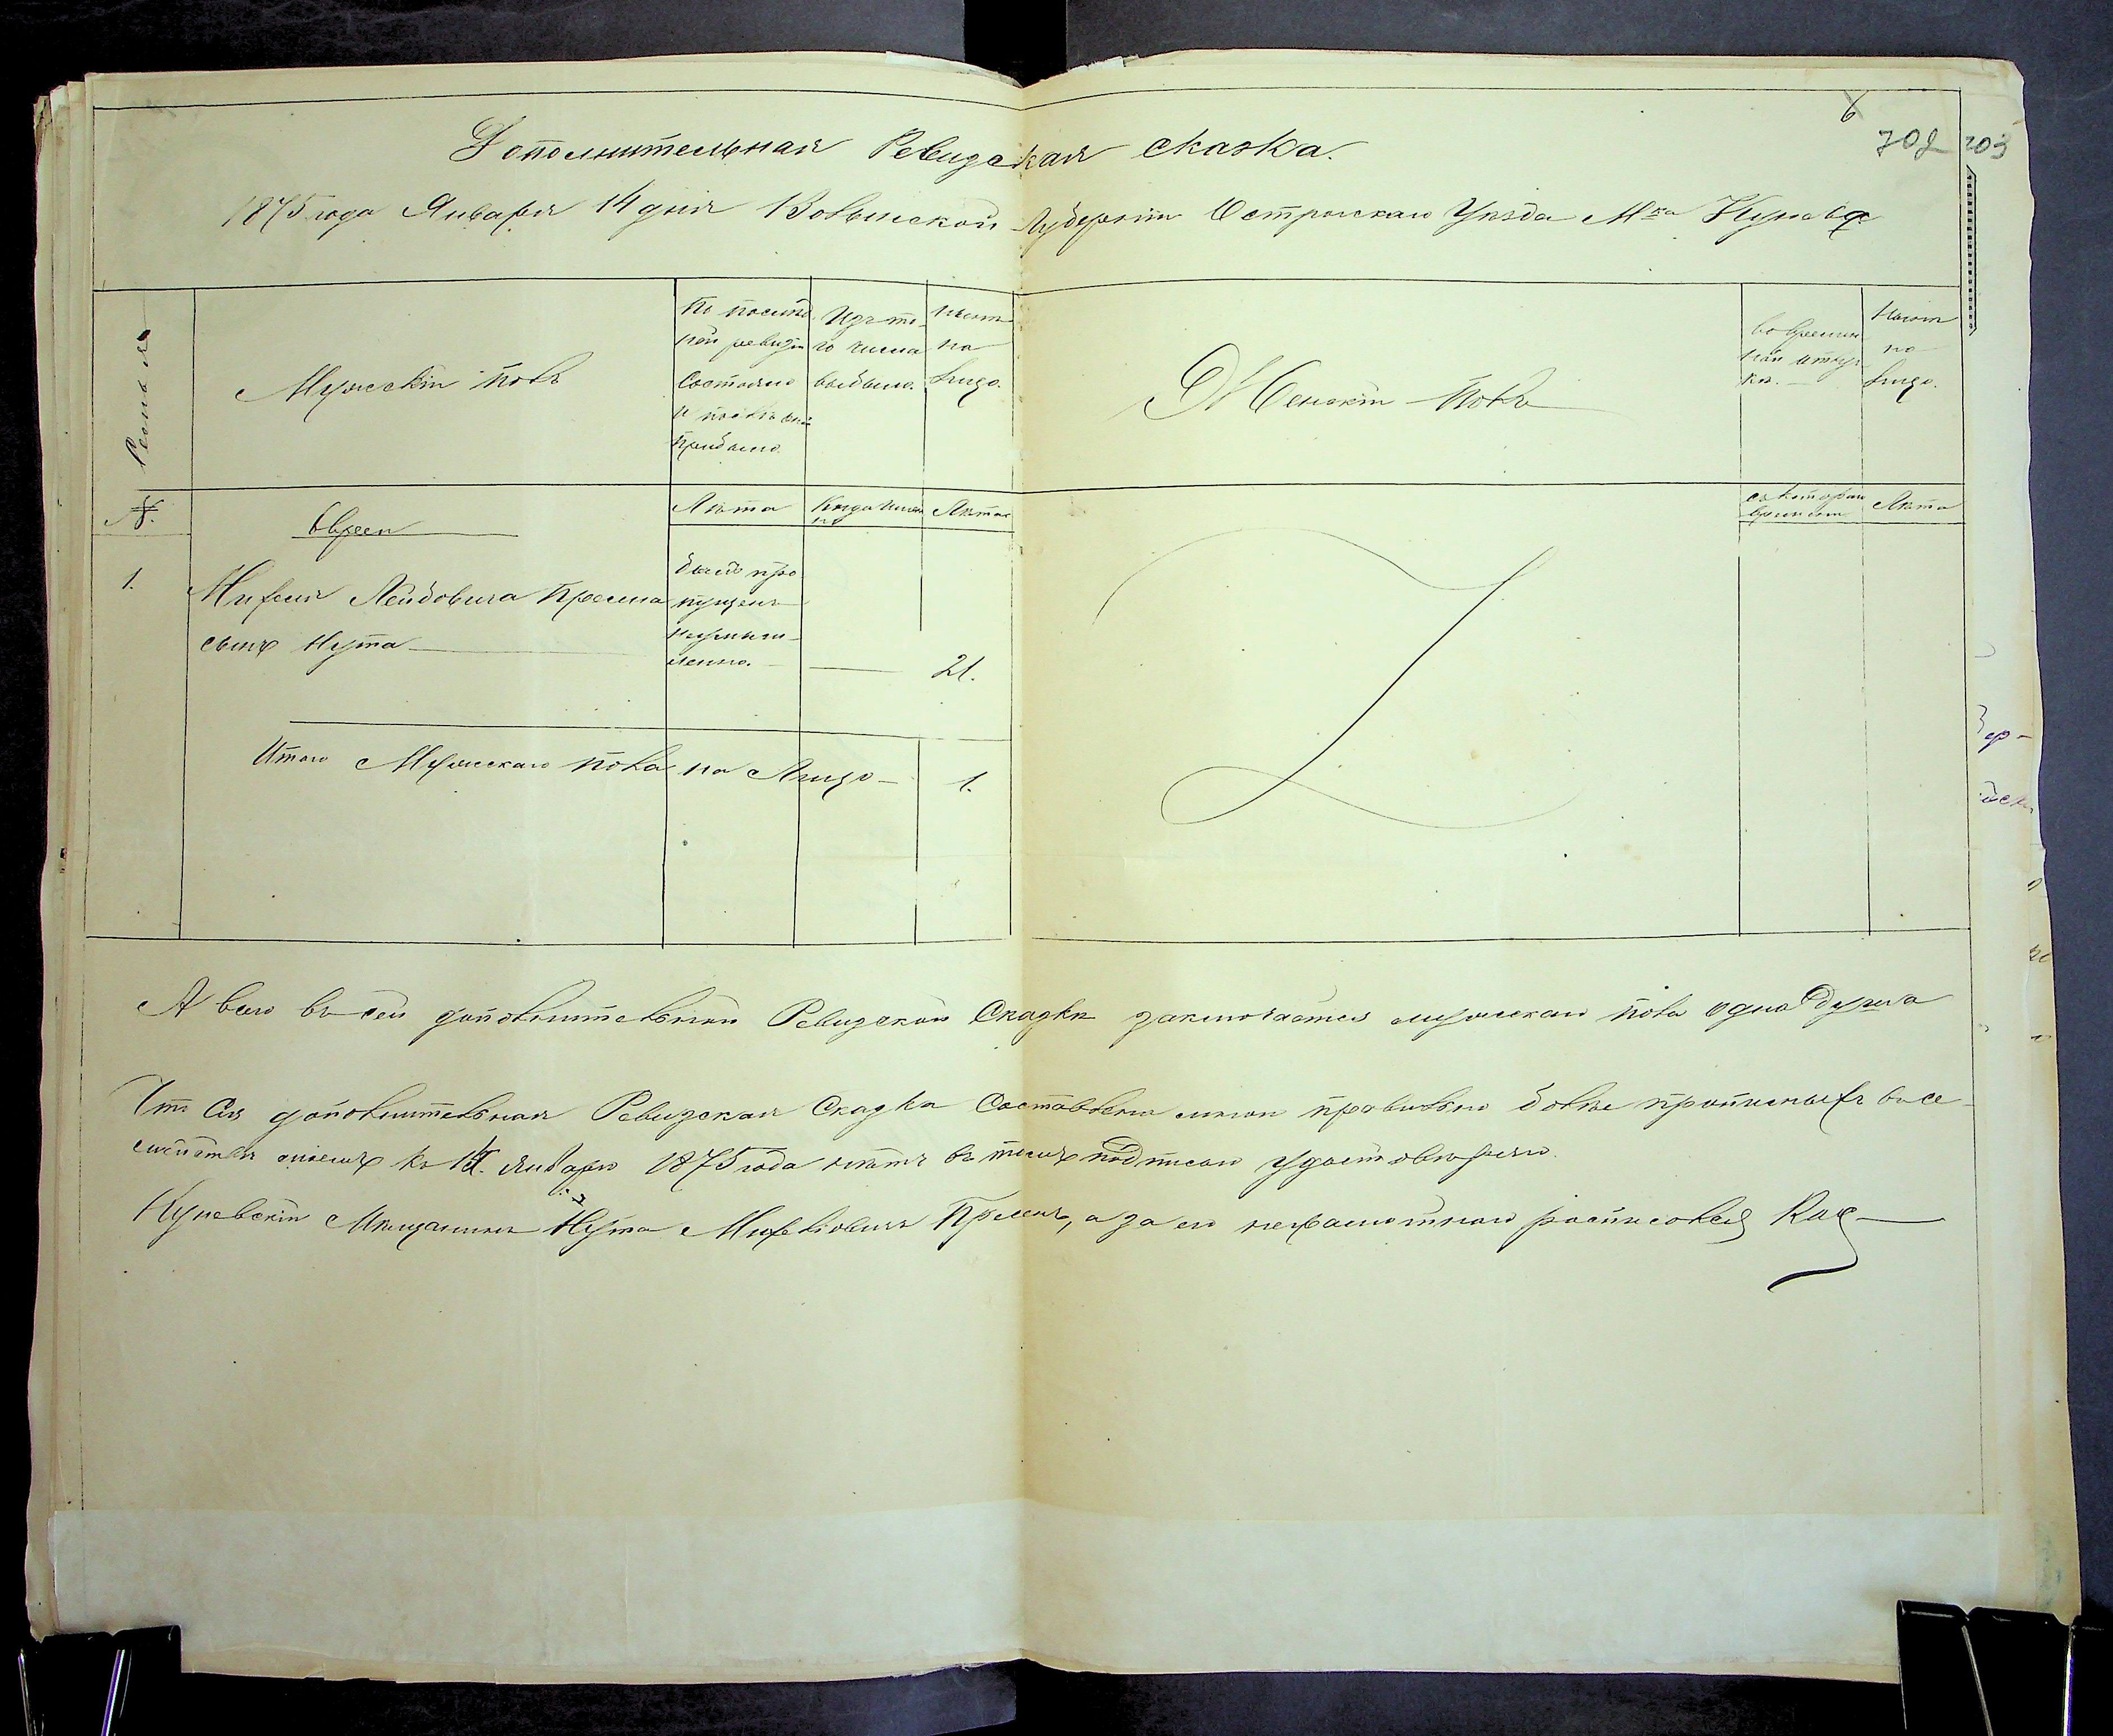 6
708 703
Дополнительная Ревизская сказка.
1875 года Января 14 дня Волынской Губерніи Острожскаго Уѣзда Мка Кунева
Семья
Мужескій полъ
По послѣд
ней ревизіи
состояло
и послѣ оной
прибыло
Изъ то-
го числа
выбыло.
Нынѣ
на
лицо.
Женскій полъ
во времен
ной отлуч
кѣ.
Нынѣ
на
лицо.
№.
Евреи
Лѣта
Когда именно
Лѣта
съ котораго
времени
Лѣта
1.
Мифеля Лейбовича Премена
сынъ Нута
былъ про
пущенъ
неумыш-
ленно.
21.
Итого Мужескаго пола на Лицо -
1.
А всего въ сей дополнительной Ревизской Сказкѣ заключается мужескаго пола одна душа
Что Сія дополнительная Ревизская Сказка Составлена мною правильно болѣе прописныхъ въ се-
къ 14. Января 1875 года нѣтъ въ томъ подписью удостовѣряю.
Куневскій Мѣщанинъ Нута Мифелiовичъ, а за его неграмотнаго росписался